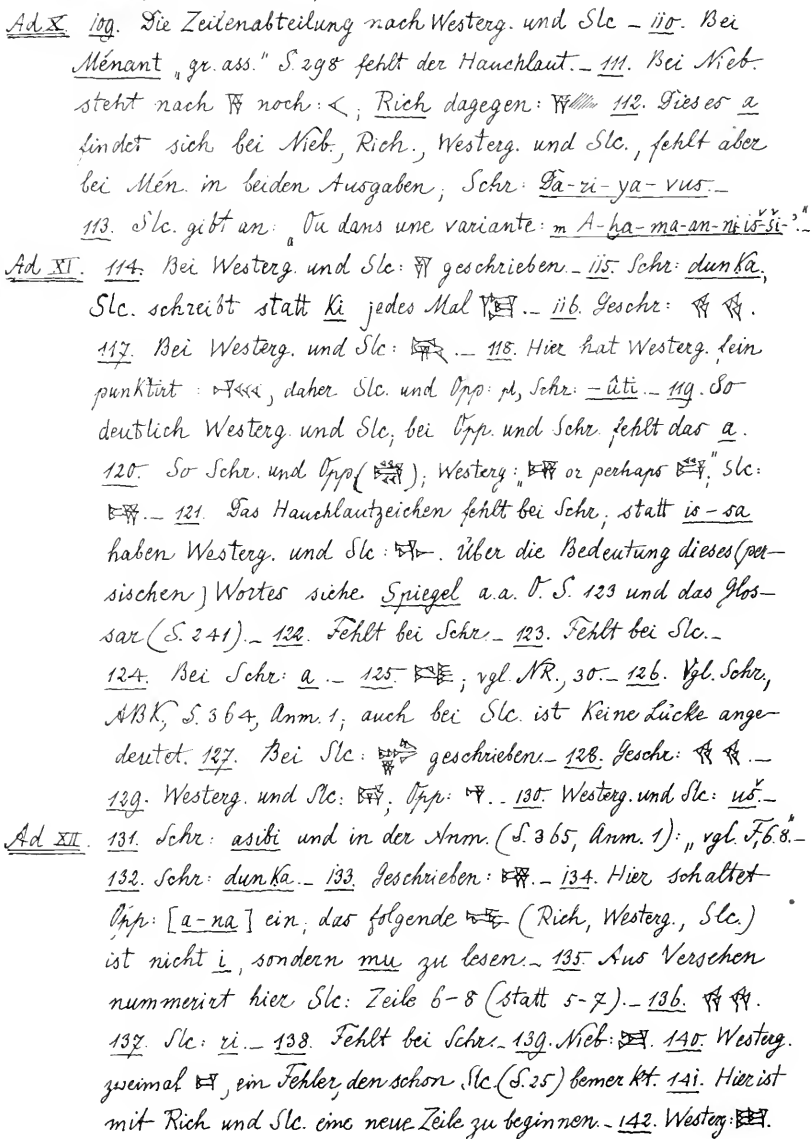 Ad X. 109. Die Zeilenabteilung nach Westerg. und Slc – 110. Bei
Ménant „gr. ass." S. 298 fehlt der Hauchlaut. – 111. Bei Nieb.
steht nach 𒀀 noch: 𒌋; Rich dagegen: 𒀀 112. Dieses a
findet sich bei Nieb., Rich., Westerg. und Slc., fehlt aber
bei Mén. in beiden Ausgaben; Schr: Da-ri-ya-vus. –
113. Slc. gibt an: „Ou dans une variante: m A-ha-ma-an-ni-iš-ši-'." –
Ad XI. 114. Bei Westerg. und Slc: geschrieben. – 115. Schr: dunka;
Slc. schreibt statt Ki jedes Mal. – 116. Geschr:
117. Bei Westerg. und Slc: – 118. Hier hat Westerg. fein
punktirt: , daher Slc. und Opp: pl, Schr: – ûti. – 119. So
deutlich Westerg. und Slc; bei Opp. und Schr. fehlt das a.
120. So Schr. und Opp ( ); Westerg: „ or perhaps ;" Slc:
– 121. Das Hauchlautzeichen fehlt bei Schr.; statt is-sa
haben Westerg. und Slc: . Über die Bedeutung dieses (per-
sischen) Wortes siehe Spiegel a.a. O. S. 123 und das Glos-
sar (S. 241). – 122. Fehlt bei Schr. – 123. Fehlt bei Slc. –
124. Bei Schr: a. – 125. ; vgl. NR., 30. – 126. Vgl. Schr.,
ABK, S. 364, Anm. 1; auch bei Slc. ist keine Lücke ange-
deutet. 127. Bei Slc: geschrieben. – 128. Geschr: –
129. Westerg. und Slc: , Opp: . – 130. Westerg. und Slc: uš. –
Ad XII. 131. Schr: asibi und in der Anm. (S. 365, Anm. 1): „vgl. F, 6. 8." –
132. Schr: dunka. – 133. Geschrieben: . – 134. Hier schaltet
Opp: [a-na] ein; das folgende (Rich, Westerg., Slc.)
ist nicht i, sondern mu zu lesen. – 135. Aus Versehen
nummerirt hier Slc: Zeile 6-8 (statt 5-7). – 136.
137. Slc: ri. – 138. Fehlt bei Schr. – 139. Nieb: . 140. Westerg.
zweimal , ein Fehler, den schon Slc. (S. 25) bemerkt. 141. Hier ist
mit Rich und Slc. eine neue Zeile zu beginnen. – 142. Westerg: .